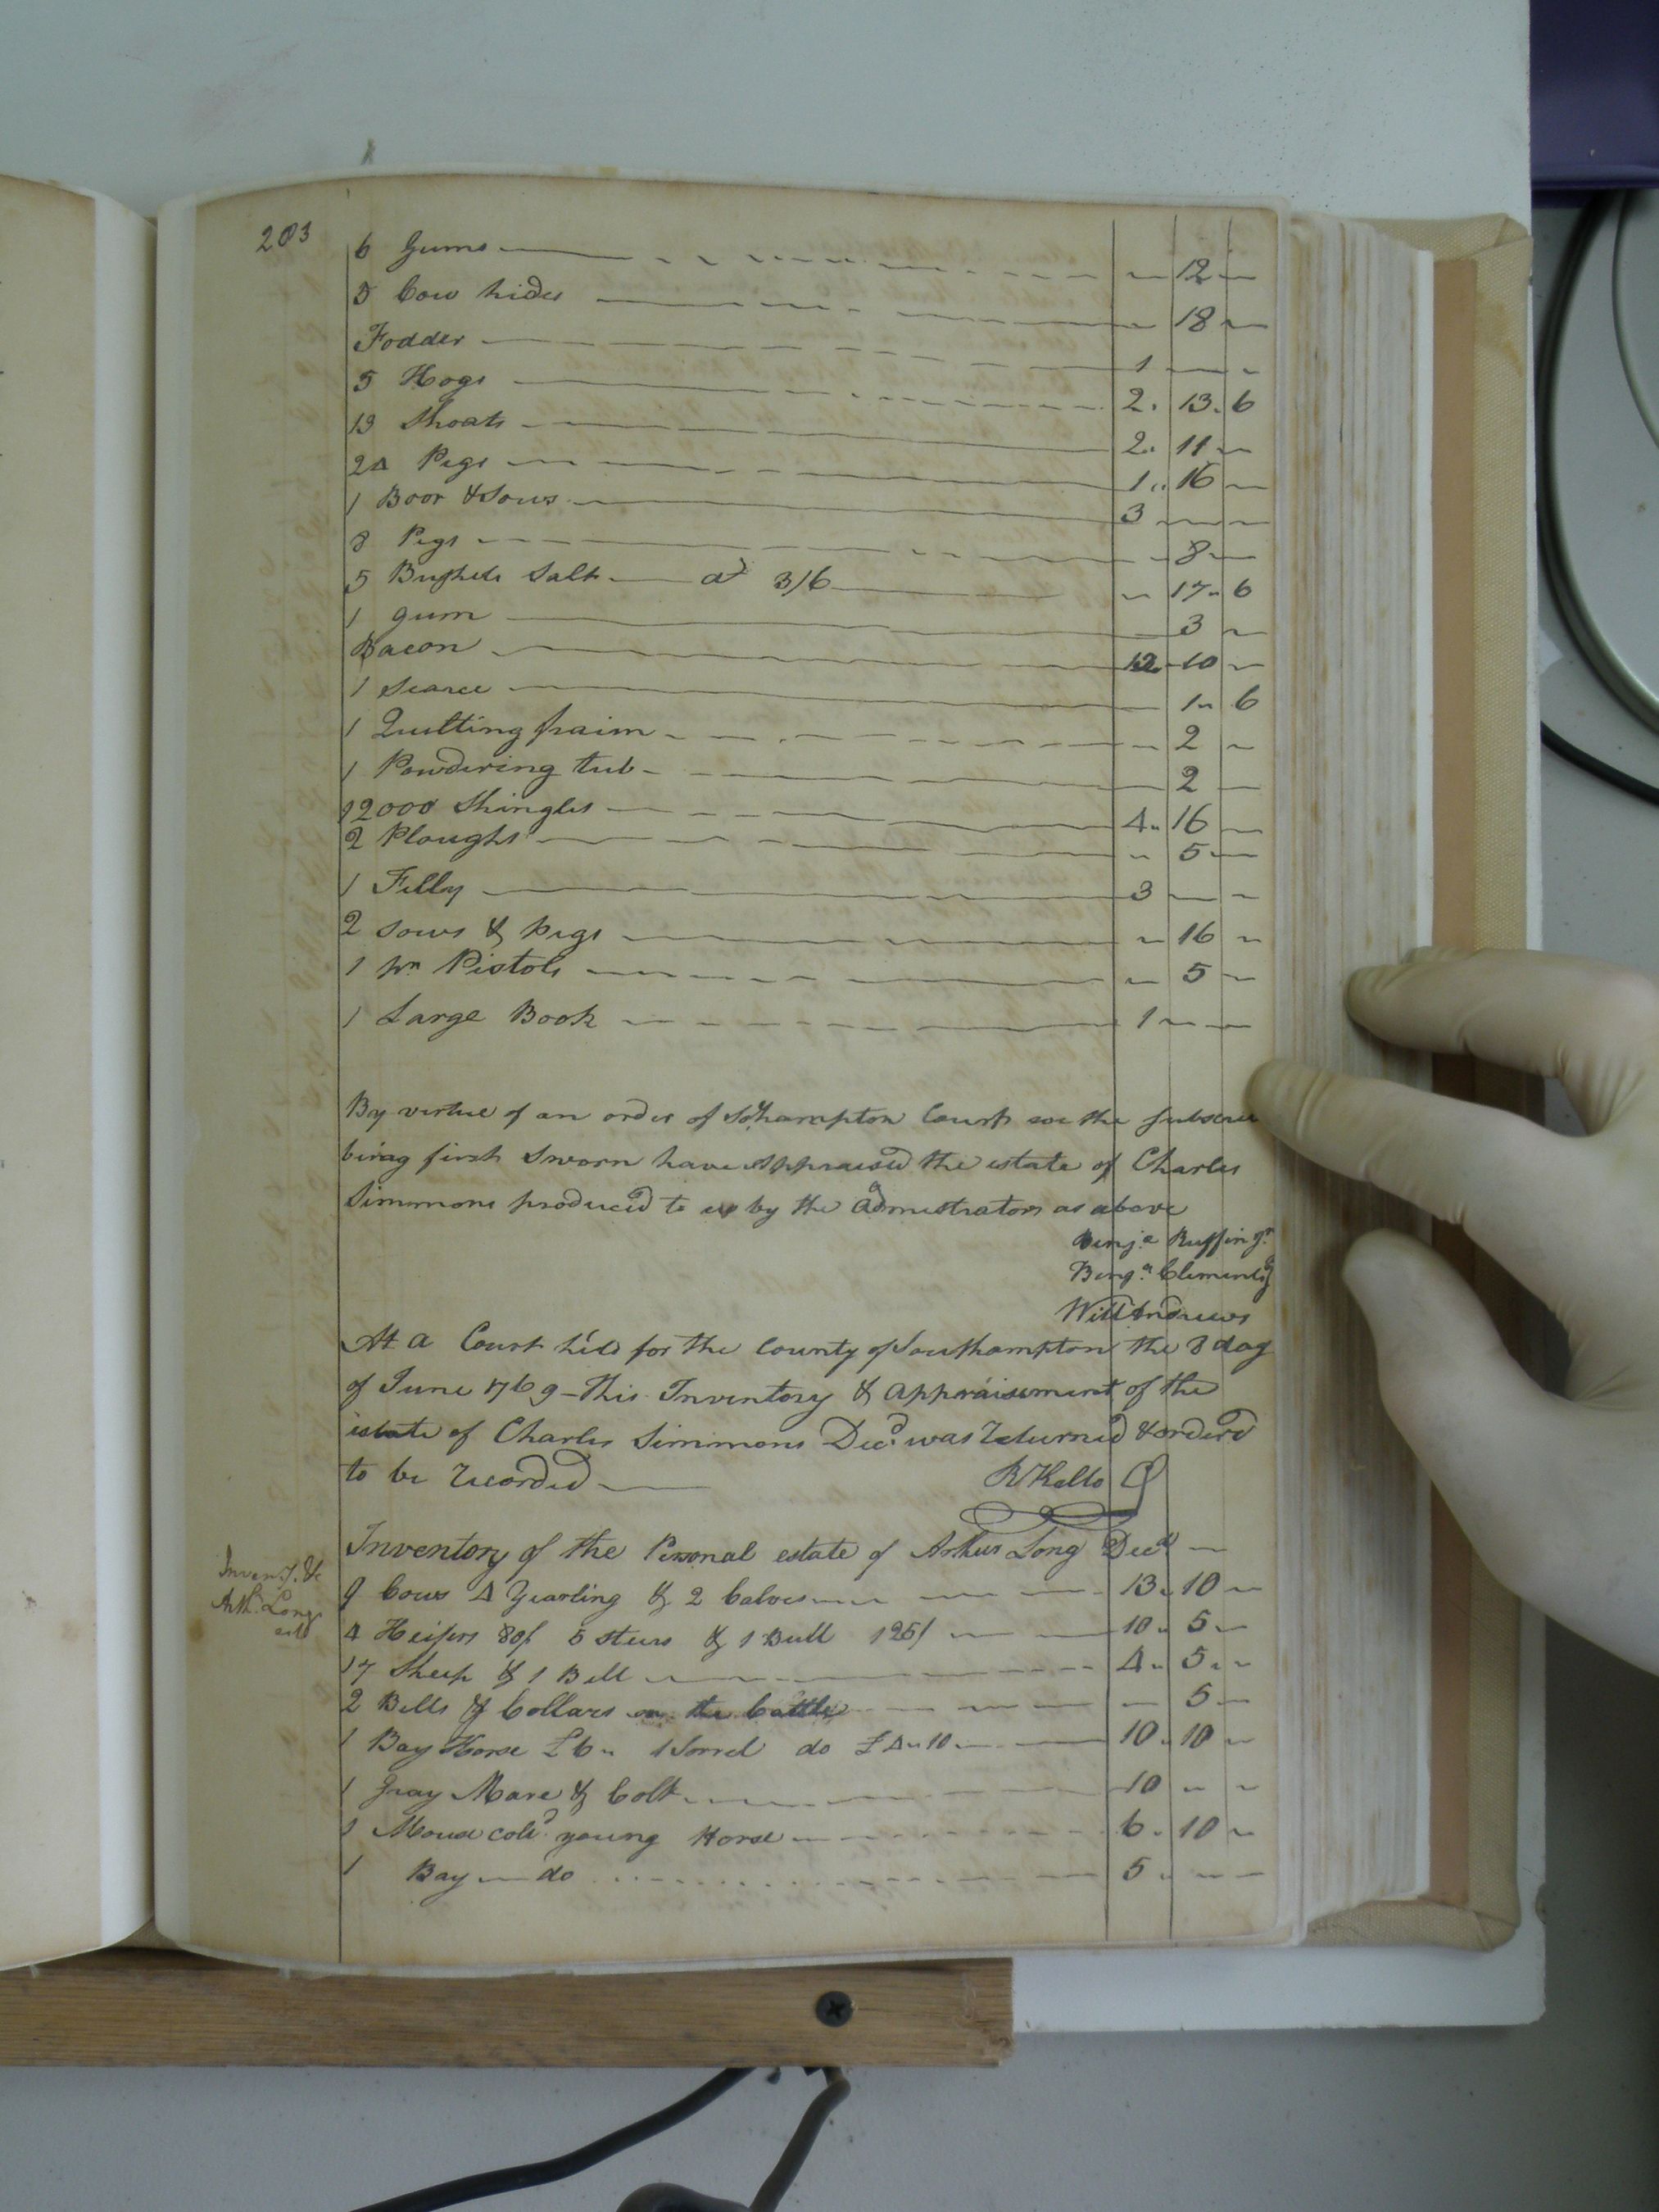 203
6 Gums — 12 —
5 Cow hides — 18 —
Fodder 1 — —
5 Hogs 2. 13. 6
13 Shoats 2. 11 —
24 Pigs 1 .. 16 —
1 Boor & Sows 3 — —
8 Pigs — 8 —
5 Bushels Salt at 3/6 — 17 .. 6
1 gum — 3 —
Bacon 12 10 —
1 Searce 1 .. 6
1 Quilting fraim — 2 —
1 Powdering tub — 2 —
12000 Shingles 4 .. 16 —
2 Ploughs — 5 —
1 Filly 3 — —
2 sows & pigs — 16 —
1 pr Pistols — 5 —
1 Large Book 1 — —
By virtue of an order of Sohampton Court we the subscri
being first Sworn have appraised the estate of Charles
Simmons produced to us by the admistrators as above
Benja Ruffin Jr
Benja Clements
Will Andrews
At a Court held for the County of Southampton the 8 day
of June 1769 - this Inventory & appraisement of the
estate of Charles Simmons Decd was Returned & orderd
to be Recorded — R Kello
Inventory of the Personal estate of Arthur Long Decd —
Inven.y. &c
Arth. Longs
9 Cows 4 Yearling & 2 Calves 13 .. 10 —
4 Heifers 80/ 5 steers & 1 Bull 125/ 10 .. 5 —
17 Sheep & 1 Bell 4 .. 5 ..
2 Bells & Collars on the Cattle — 5 —
1 Bay Horse £6 .. 1 Sorrel do £4 .. 10 .. 10 .. 10 —
1 Gray Mare & Colt 10 — —
1 Mouse cold young Horse 6 .. 10 —
1 Bay — do 5 .. — —